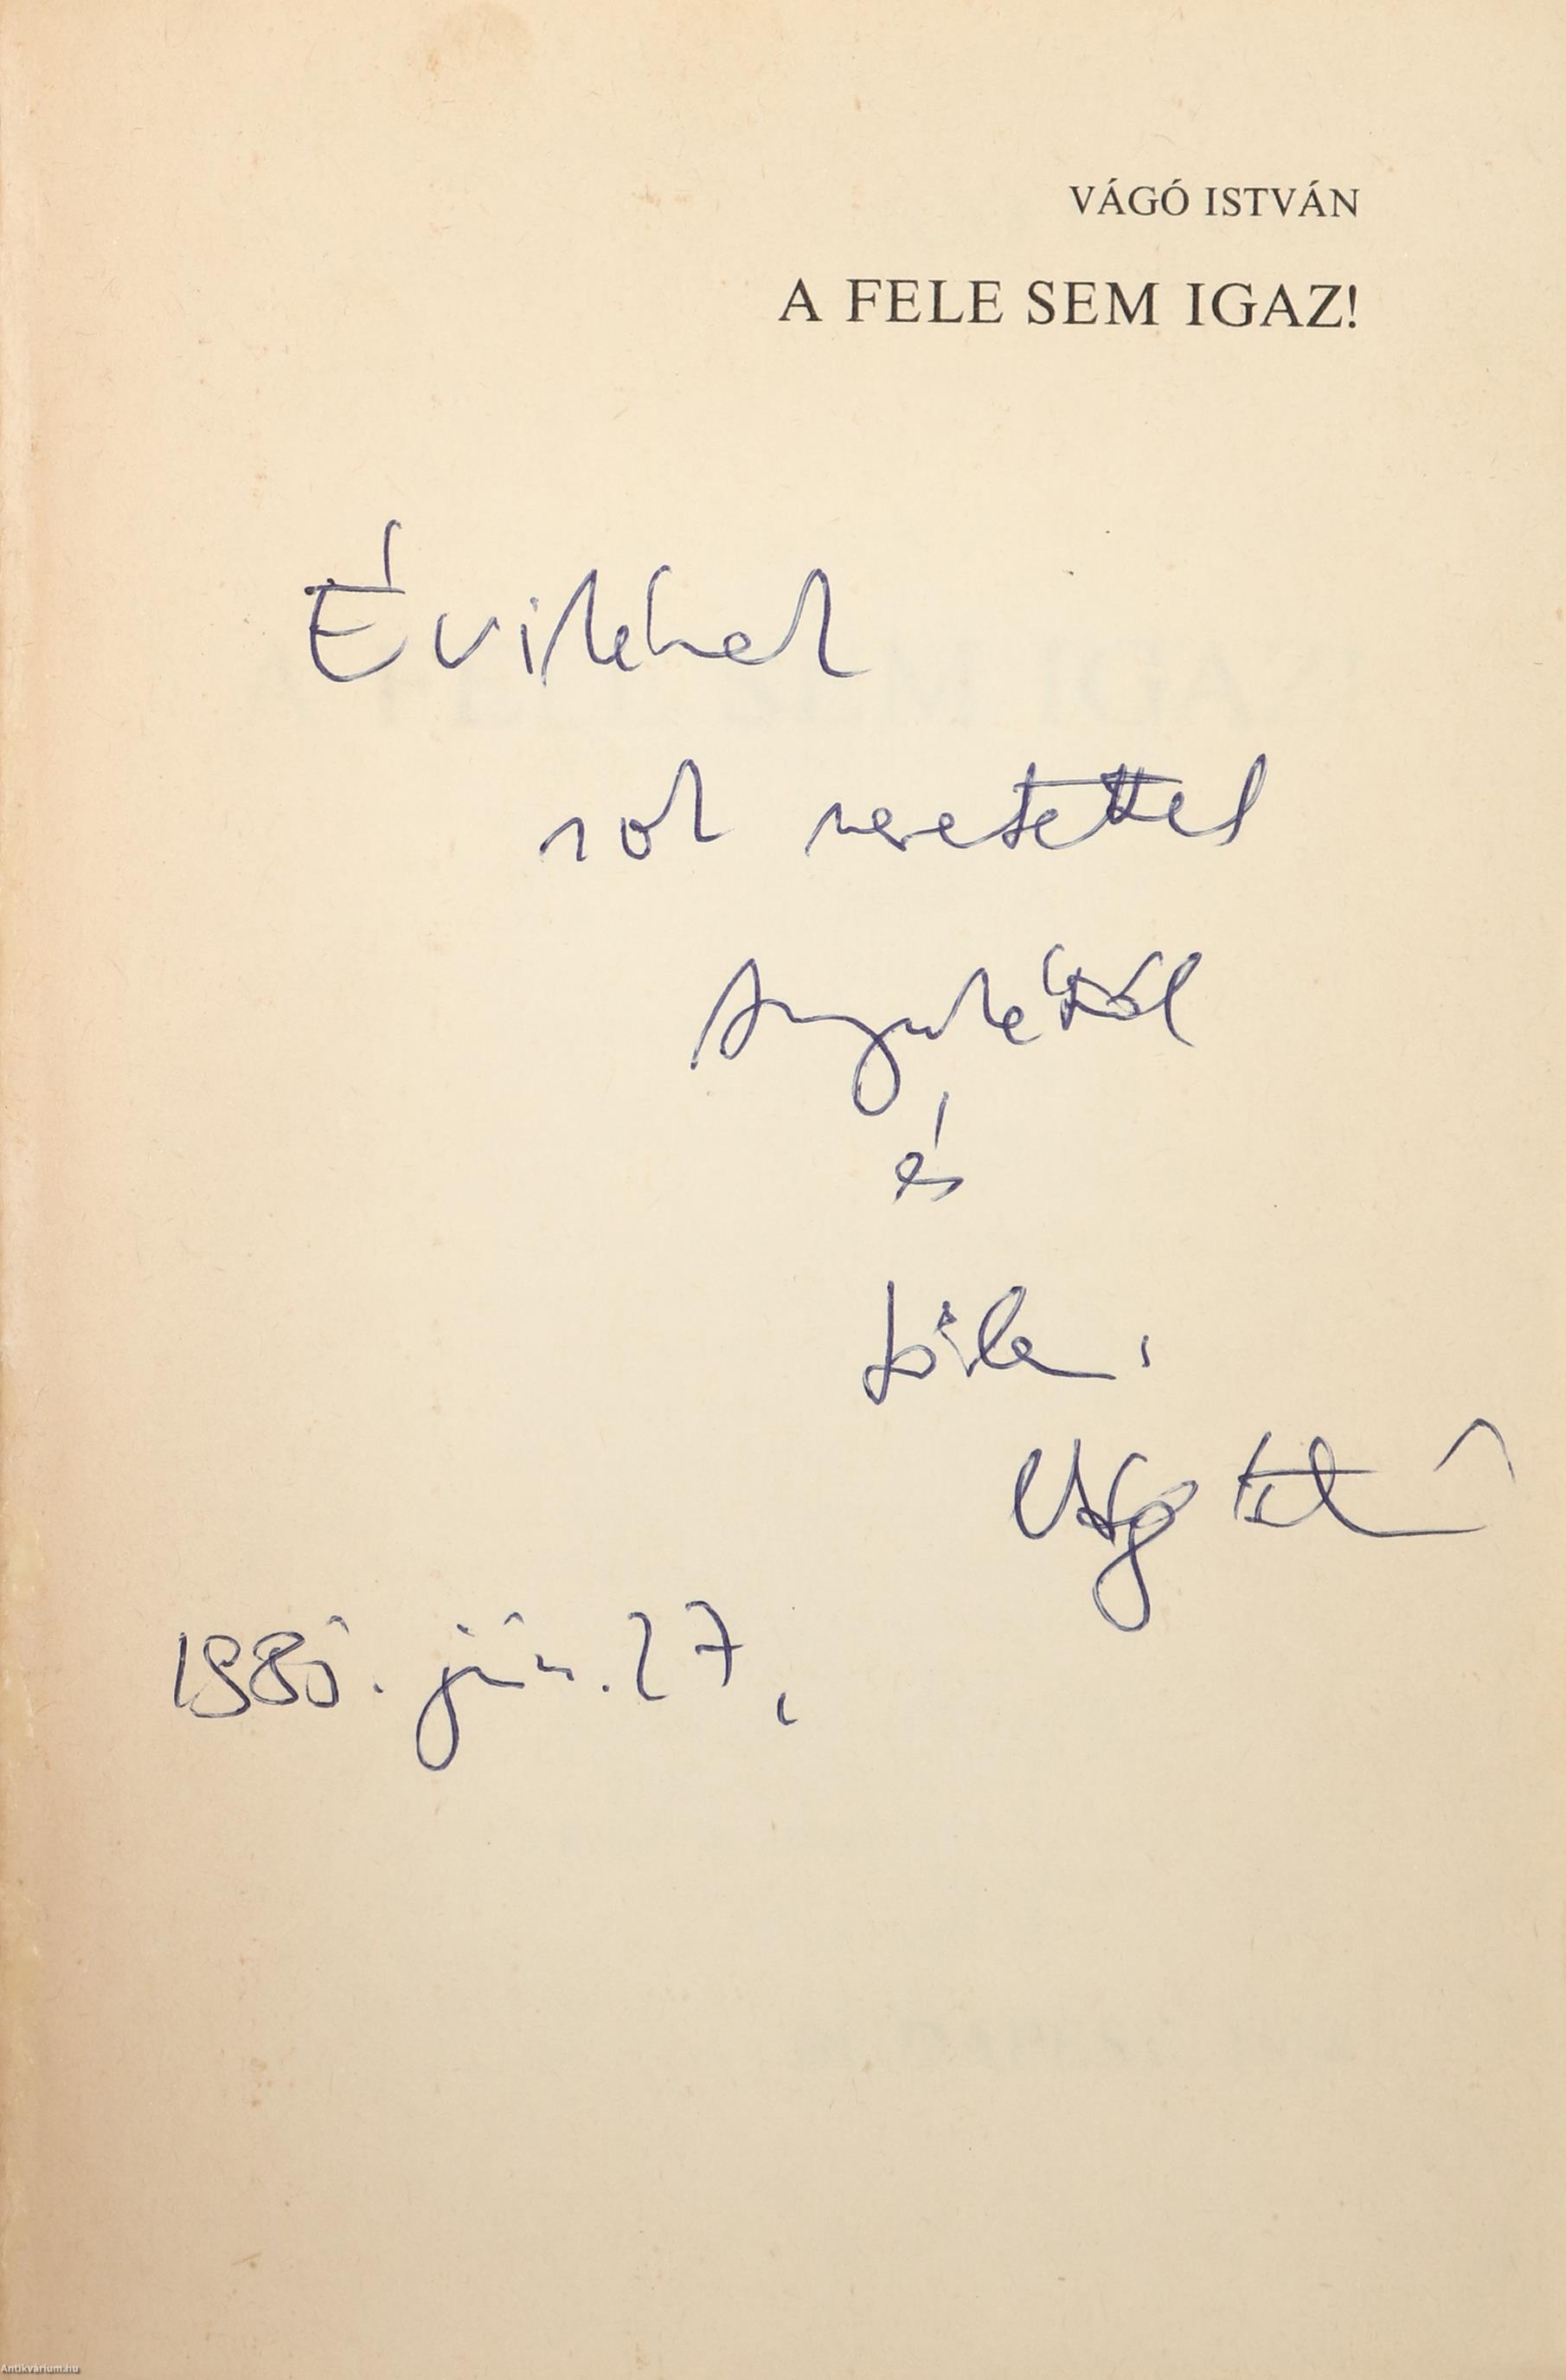 VÁGÓ ISTVÁN
A FELE SEM IGAZ!
Évikének
sok szeretettel
és
tőlem.
Vágó István
1985. jún. 27.
Antikvárium.hu